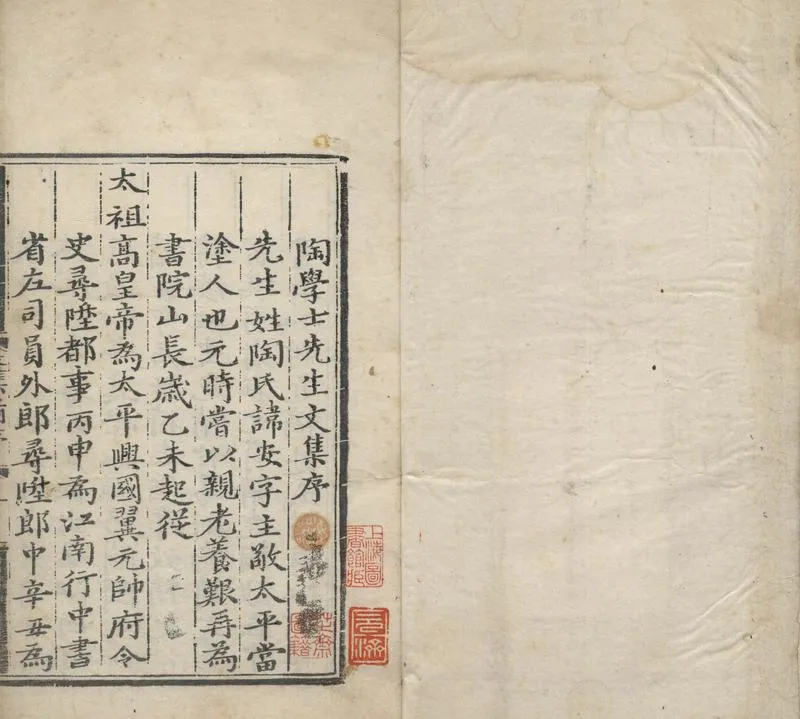 陶學士先生文集序
先生姓陶氏諱安字主敬太平當
塗人也元時嘗以親老養艱再為
書院山長歲乙未起從
太祖高皇帝為太平興國翼元帥府令
史尋陞都事丙申為江南行中書
省左司員外郎尋陞郎中辛丑為
上海圖
書館藏